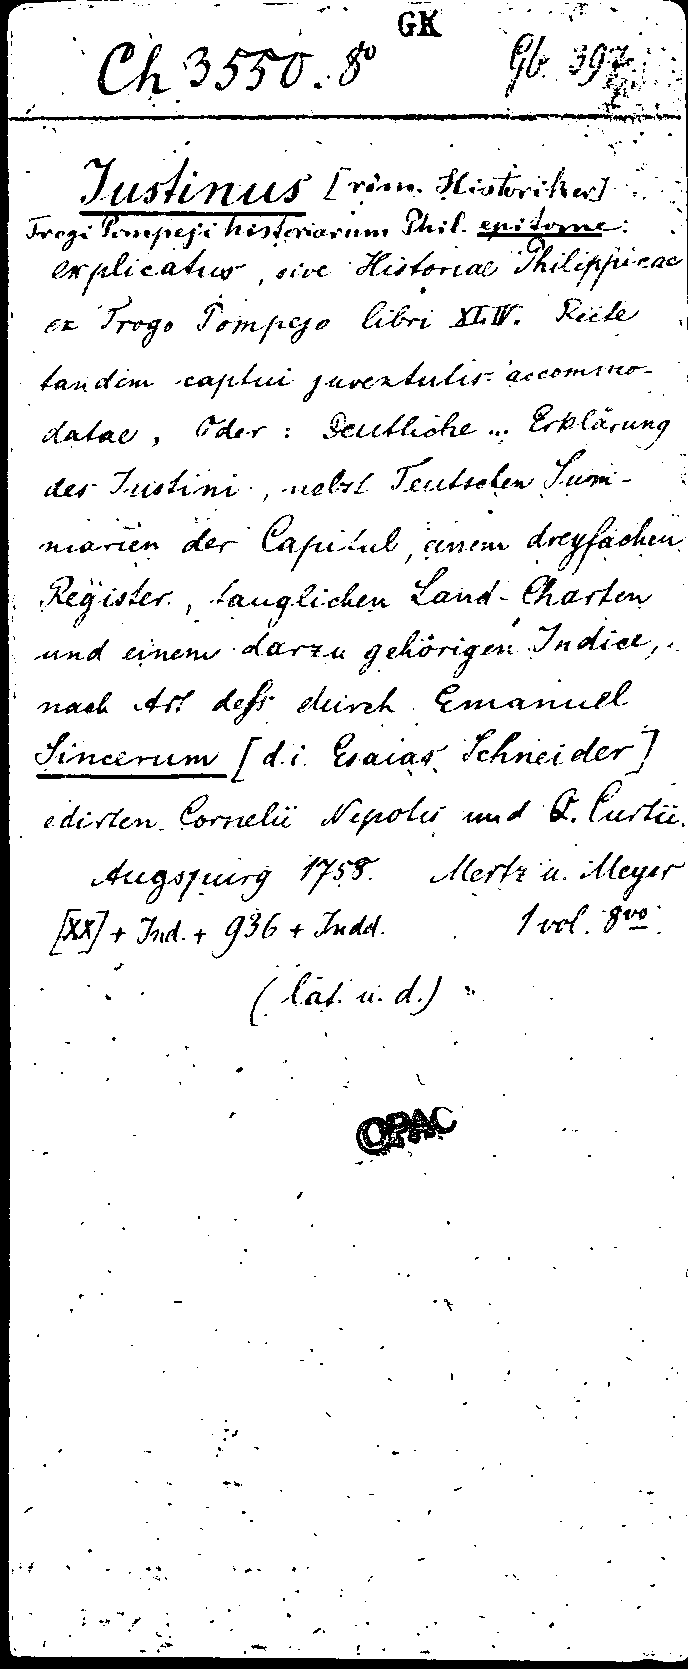 GK
Ch 3550. 8° Gb. 397
Justinus [röm. Historiker]
Trogi Pompeji historiarum Phil. epitome:
explicatus, sive Historiae Philippicae
ex Trogo Pompejo libri XLIV. Recte
tandem captui juventutis accommo-
datae, Oder: Deutliche ... Erklärung
des Justini, nebst Teutschen Sum-
marien der Capitul, einem dreyfachen
Register, tauglichen Land-Charten
und einem darzu gehörigen Indice,
nach Art deß durch Emanuel
Sincerum [d.i. Esaias Schneider]
edirten Cornelii Nepotis und Q. Curtii.
Augspurg 1758. Mertz u. Meyer
[XX] + Ind. + 936 + Indd. 1 vol. 8vo.
(lat. u. d.)
OPAC